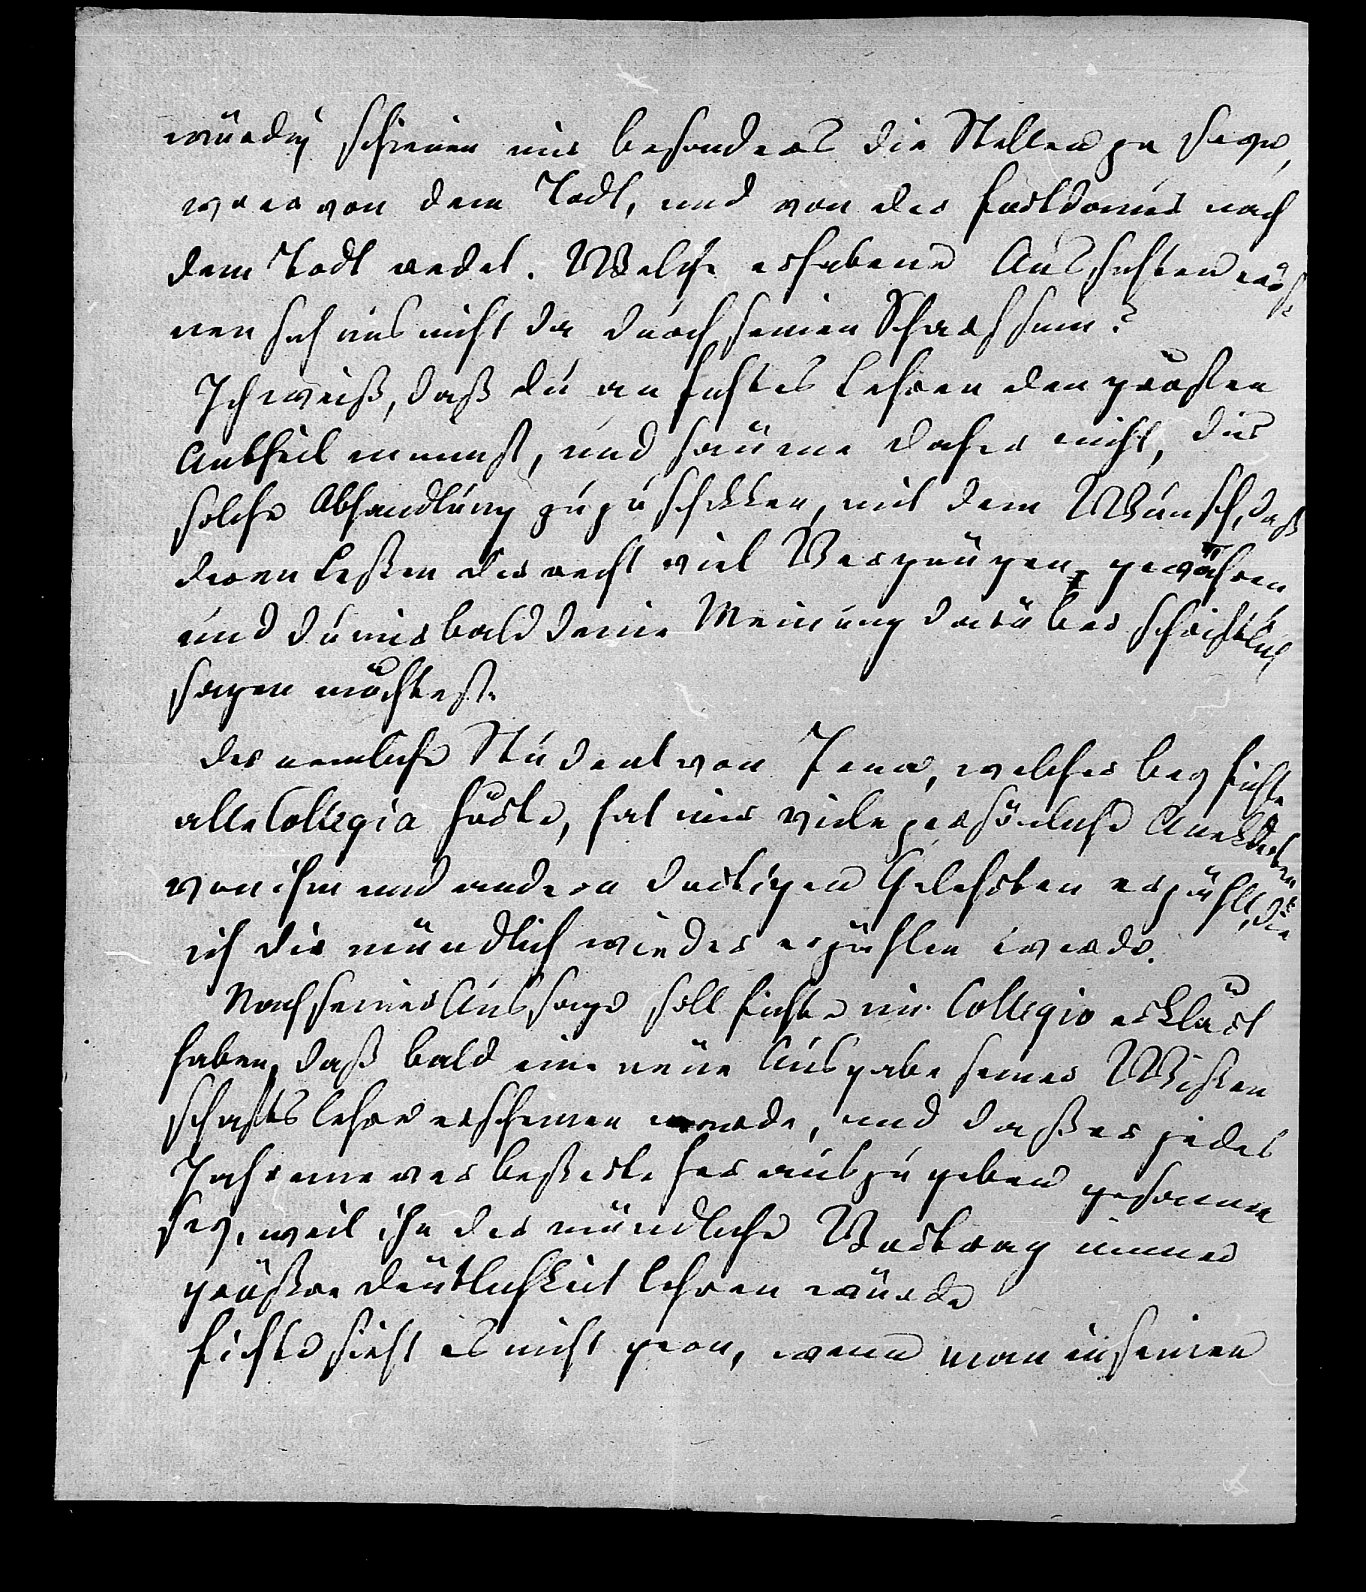 würdig schienen mir besonders die Stellen zu seyn,
wo er von dem Todt, und von der Fortdauer nach
dem Todt redet. Welche erhabene Aussichten eröf-
nen sich uns nicht da durch seinen Scharfsinn?
Ich weiß, daß du an Fichtes Lehren den grösten
Antheil nimmst, und säume daher nicht, dir
solche Abhandlung zuzuschikken, mit dem Wunsch, daß
deren Leßen dir recht viel Vergnügen gewähren,
und du mir bald deine Meinung darüber schriftlich
sagen möchtest.
Der nemliche Student von Jena, welcher bey Fichte
alle Collegia hörte, hat mir viele persönliche Anekdoten
von ihm und andern dortigen Gelehrten erzählt, die
ich dir mündlich wieder erzählen werde.
Nach seiner Aussage soll Fichte im Collegio erklärt
haben, daß bald eine neue Ausgabe seiner Wißen
schaftslehre erscheinen werde, und daß er jedes
Jahr eine verbeßerte herauszugeben gesonnen
sey, weil ihn der mündliche Vortrag immer
größre Deutlichkeit lehren würde
Fichte sieht es nicht gern, wenn man in seinen